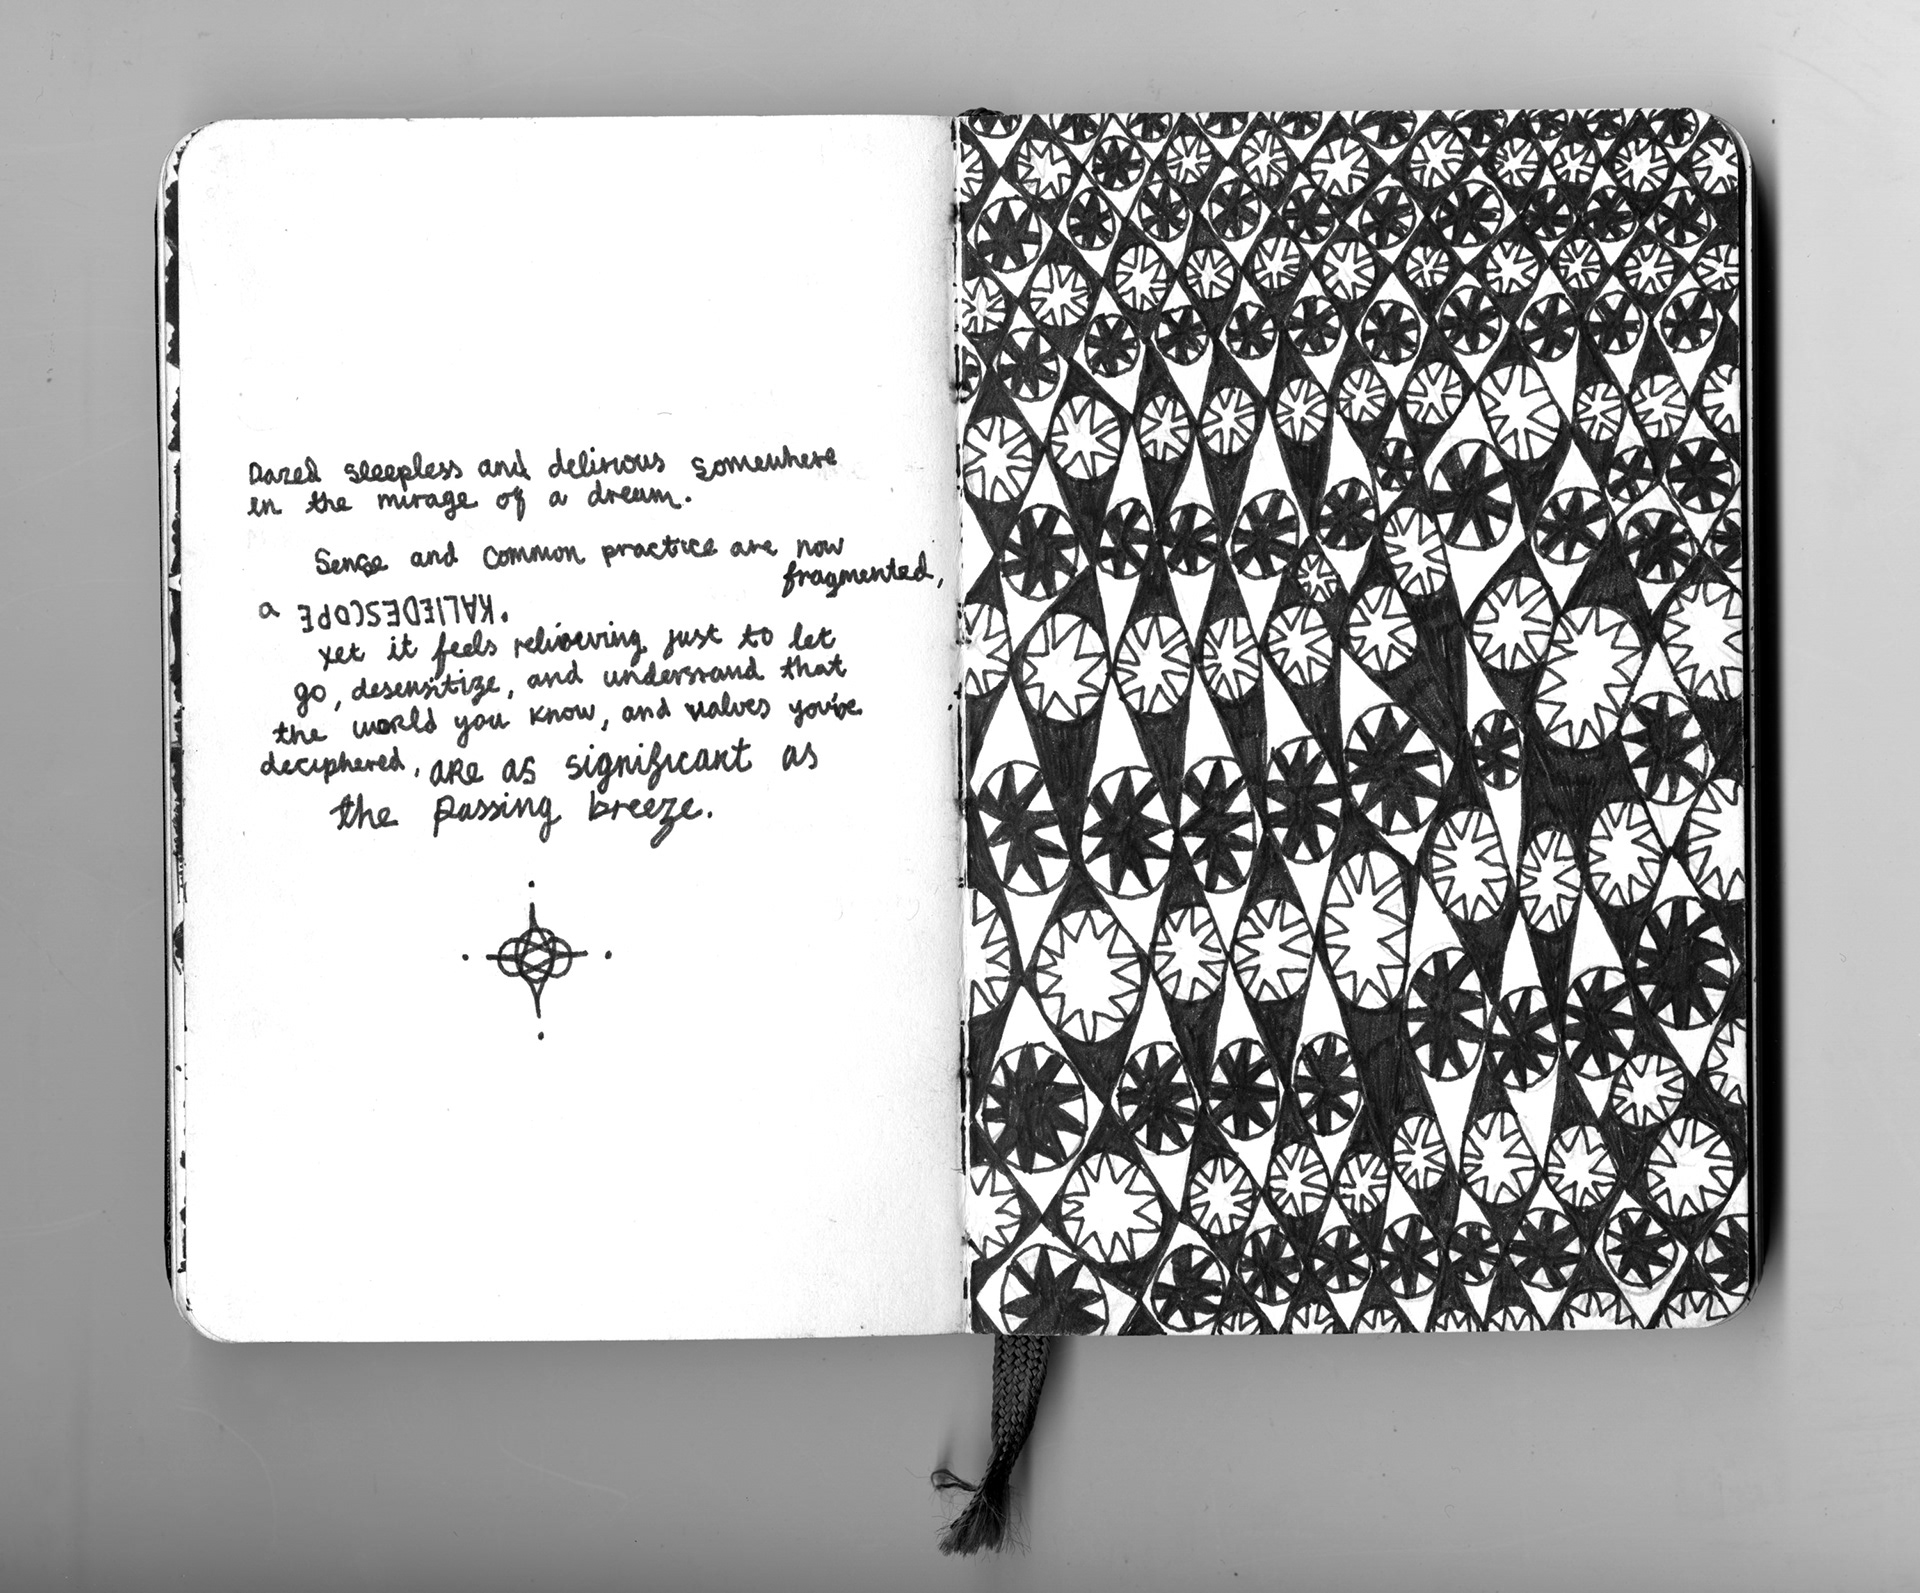 Dazed sleepless and delirious somewhere
in the mirage of a dream.
Sense and common practice are now
fragmented,
a KALIEDESCOPE.
Yet it feels relieving just to let
go, desensitize, and understand that
the world you know, and values you've
deciphered, are as significant as
the passing breeze.